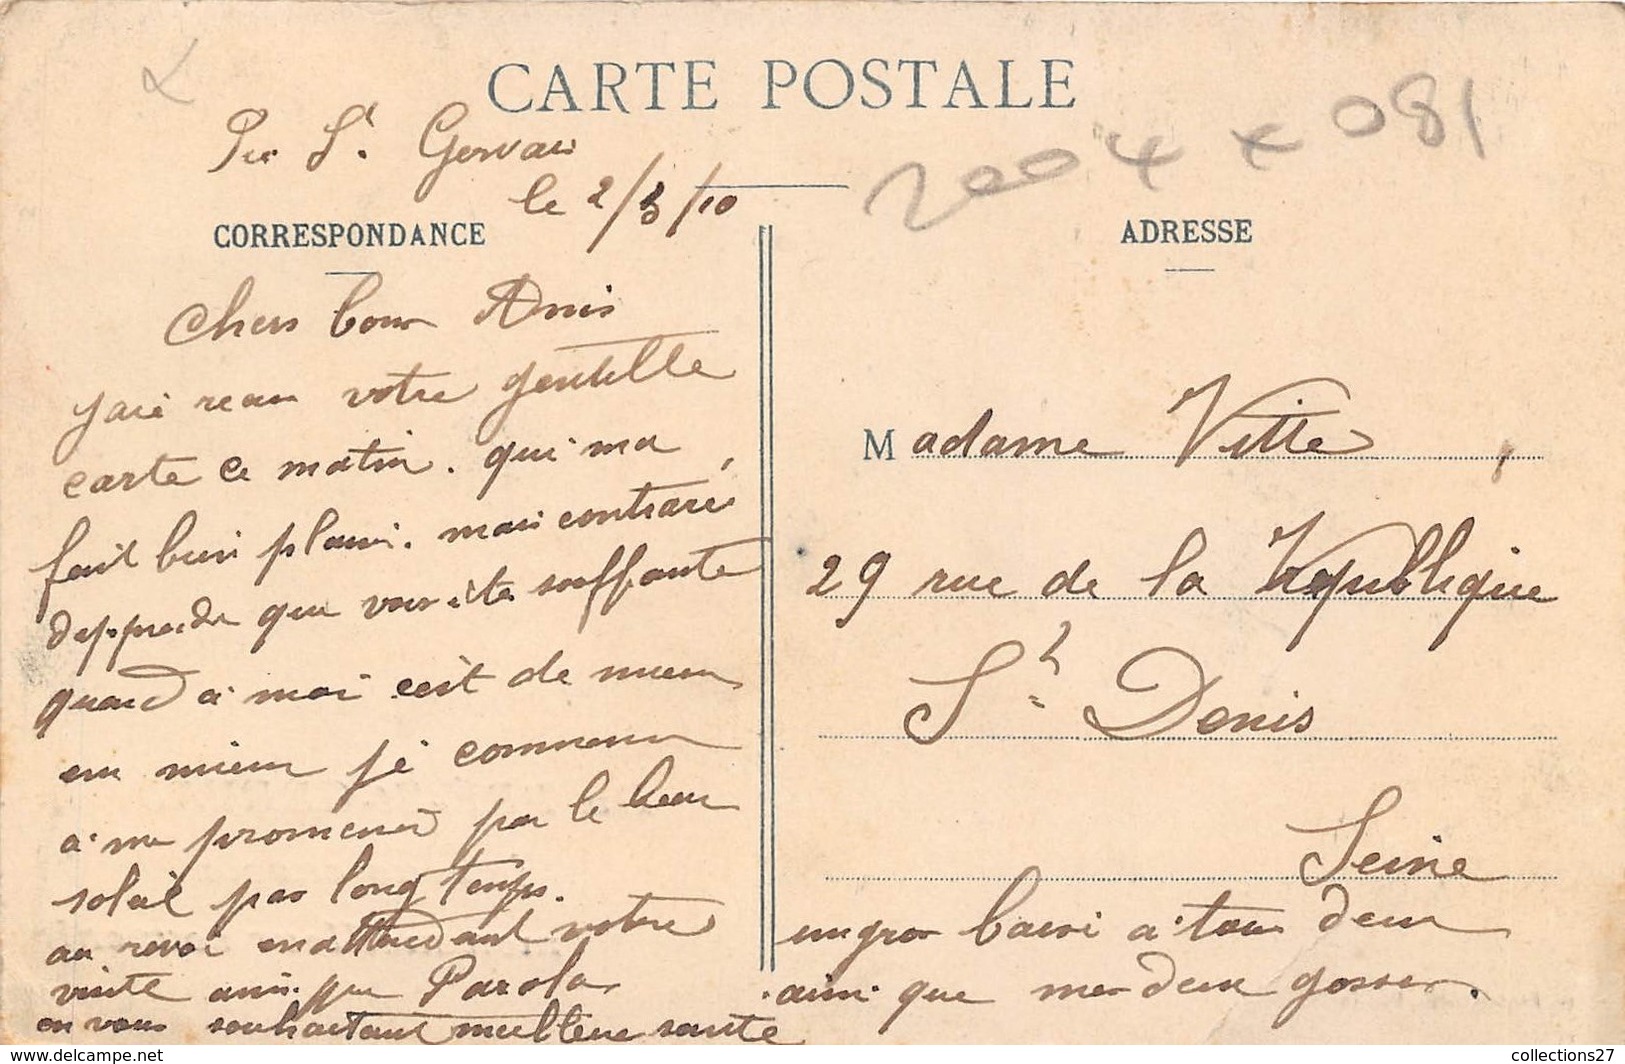 CARTE POSTALE
2004 x 081
Pré St. Gervais
le 2/3/10
CORRESPONDANCE
ADRESSE
Chers bons Amis
jaié recau votre gentille
carte ce matin. qui ma
fait bien plaisi. mais contrarié
dapprendre que vous ète souffrante
quand à moi cèst de mieux
en mieux jé commence
à me promener par le beau
soleil pas longtemps.
au revoi en attendant votre
visite ainsi que Parola
en vous souhaitant meilleure santé
Madame Vitte,
29 rue de la République
St Denis
Seine
un gros baisé à tous deux
ainsi que mes deux gosses.
collections27